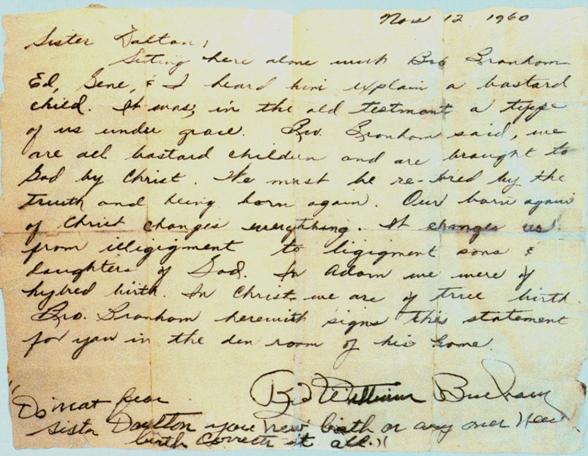 Nov 12 1960
Sister Dalton;
Siting here alone with Bro Branham
Ed, Gene, & I heard him explain a bastard
child. It was, in the old testmant a type
of us under grace. Bro. Branham said, we
are all bastard children and are brought to
God by Christ. We must be re-bred by the
truth and being born again. Our born again
of Christ changes everything. It changes us
from illigigment to ligigment sons &
daughters of God. In Adam we were of
hybred birth. In Christ, we are of true birth
Bro. Branham herewith signs this statement
for you in the den room of his home.
Bro William Branham
"Do not fear
sister Daulton your new birth or any ones new
birth corrects it all."